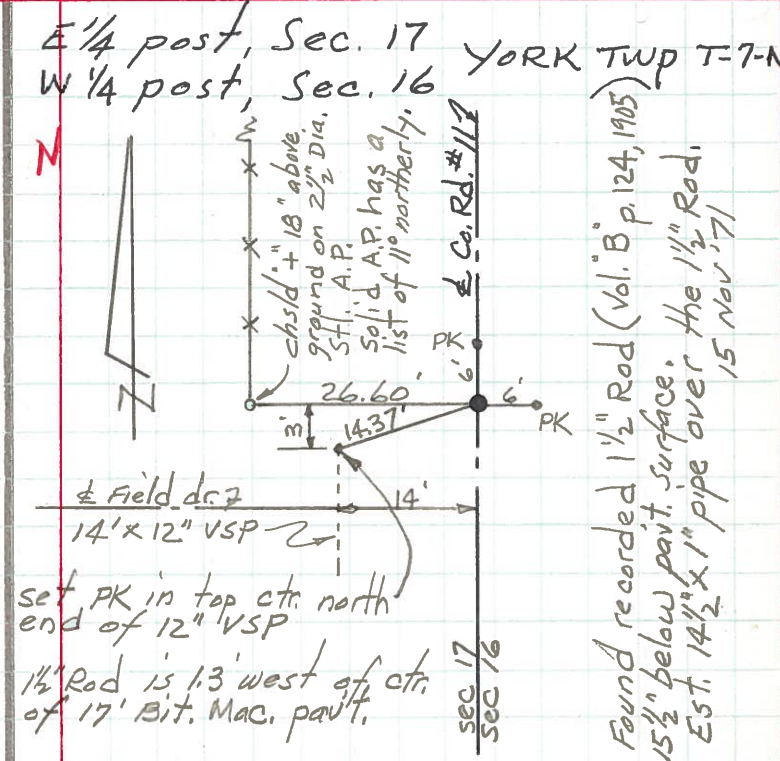 E 1/4 post, Sec. 17
W 1/4 post, Sec. 16
YORK TWP T-7-N
N
chsld "+" 18" above
ground on 2 1/2" Dia.
Stl. A.P.
Solid A.P. has a
list of 11° northerly.
℄ Co. Rd. #117
PK
6'
26.60'
6'
PK
3'
14.37'
N
℄ Field dr.
14'
14' x 12" VSP
set PK in top ctr. north
end of 12" VSP
1 1/2" Rod is 1.3' west of ctr.
of 17' Bit. Mac. pav't.
sec 17
sec 16
Found recorded 1 1/2" Rod (Vol. "B" p. 124, 1905)
15 1/2" below pav't. surface.
Est. 14 1/2" x 1" pipe over the 1 1/2" Rod.
15 Nov '71